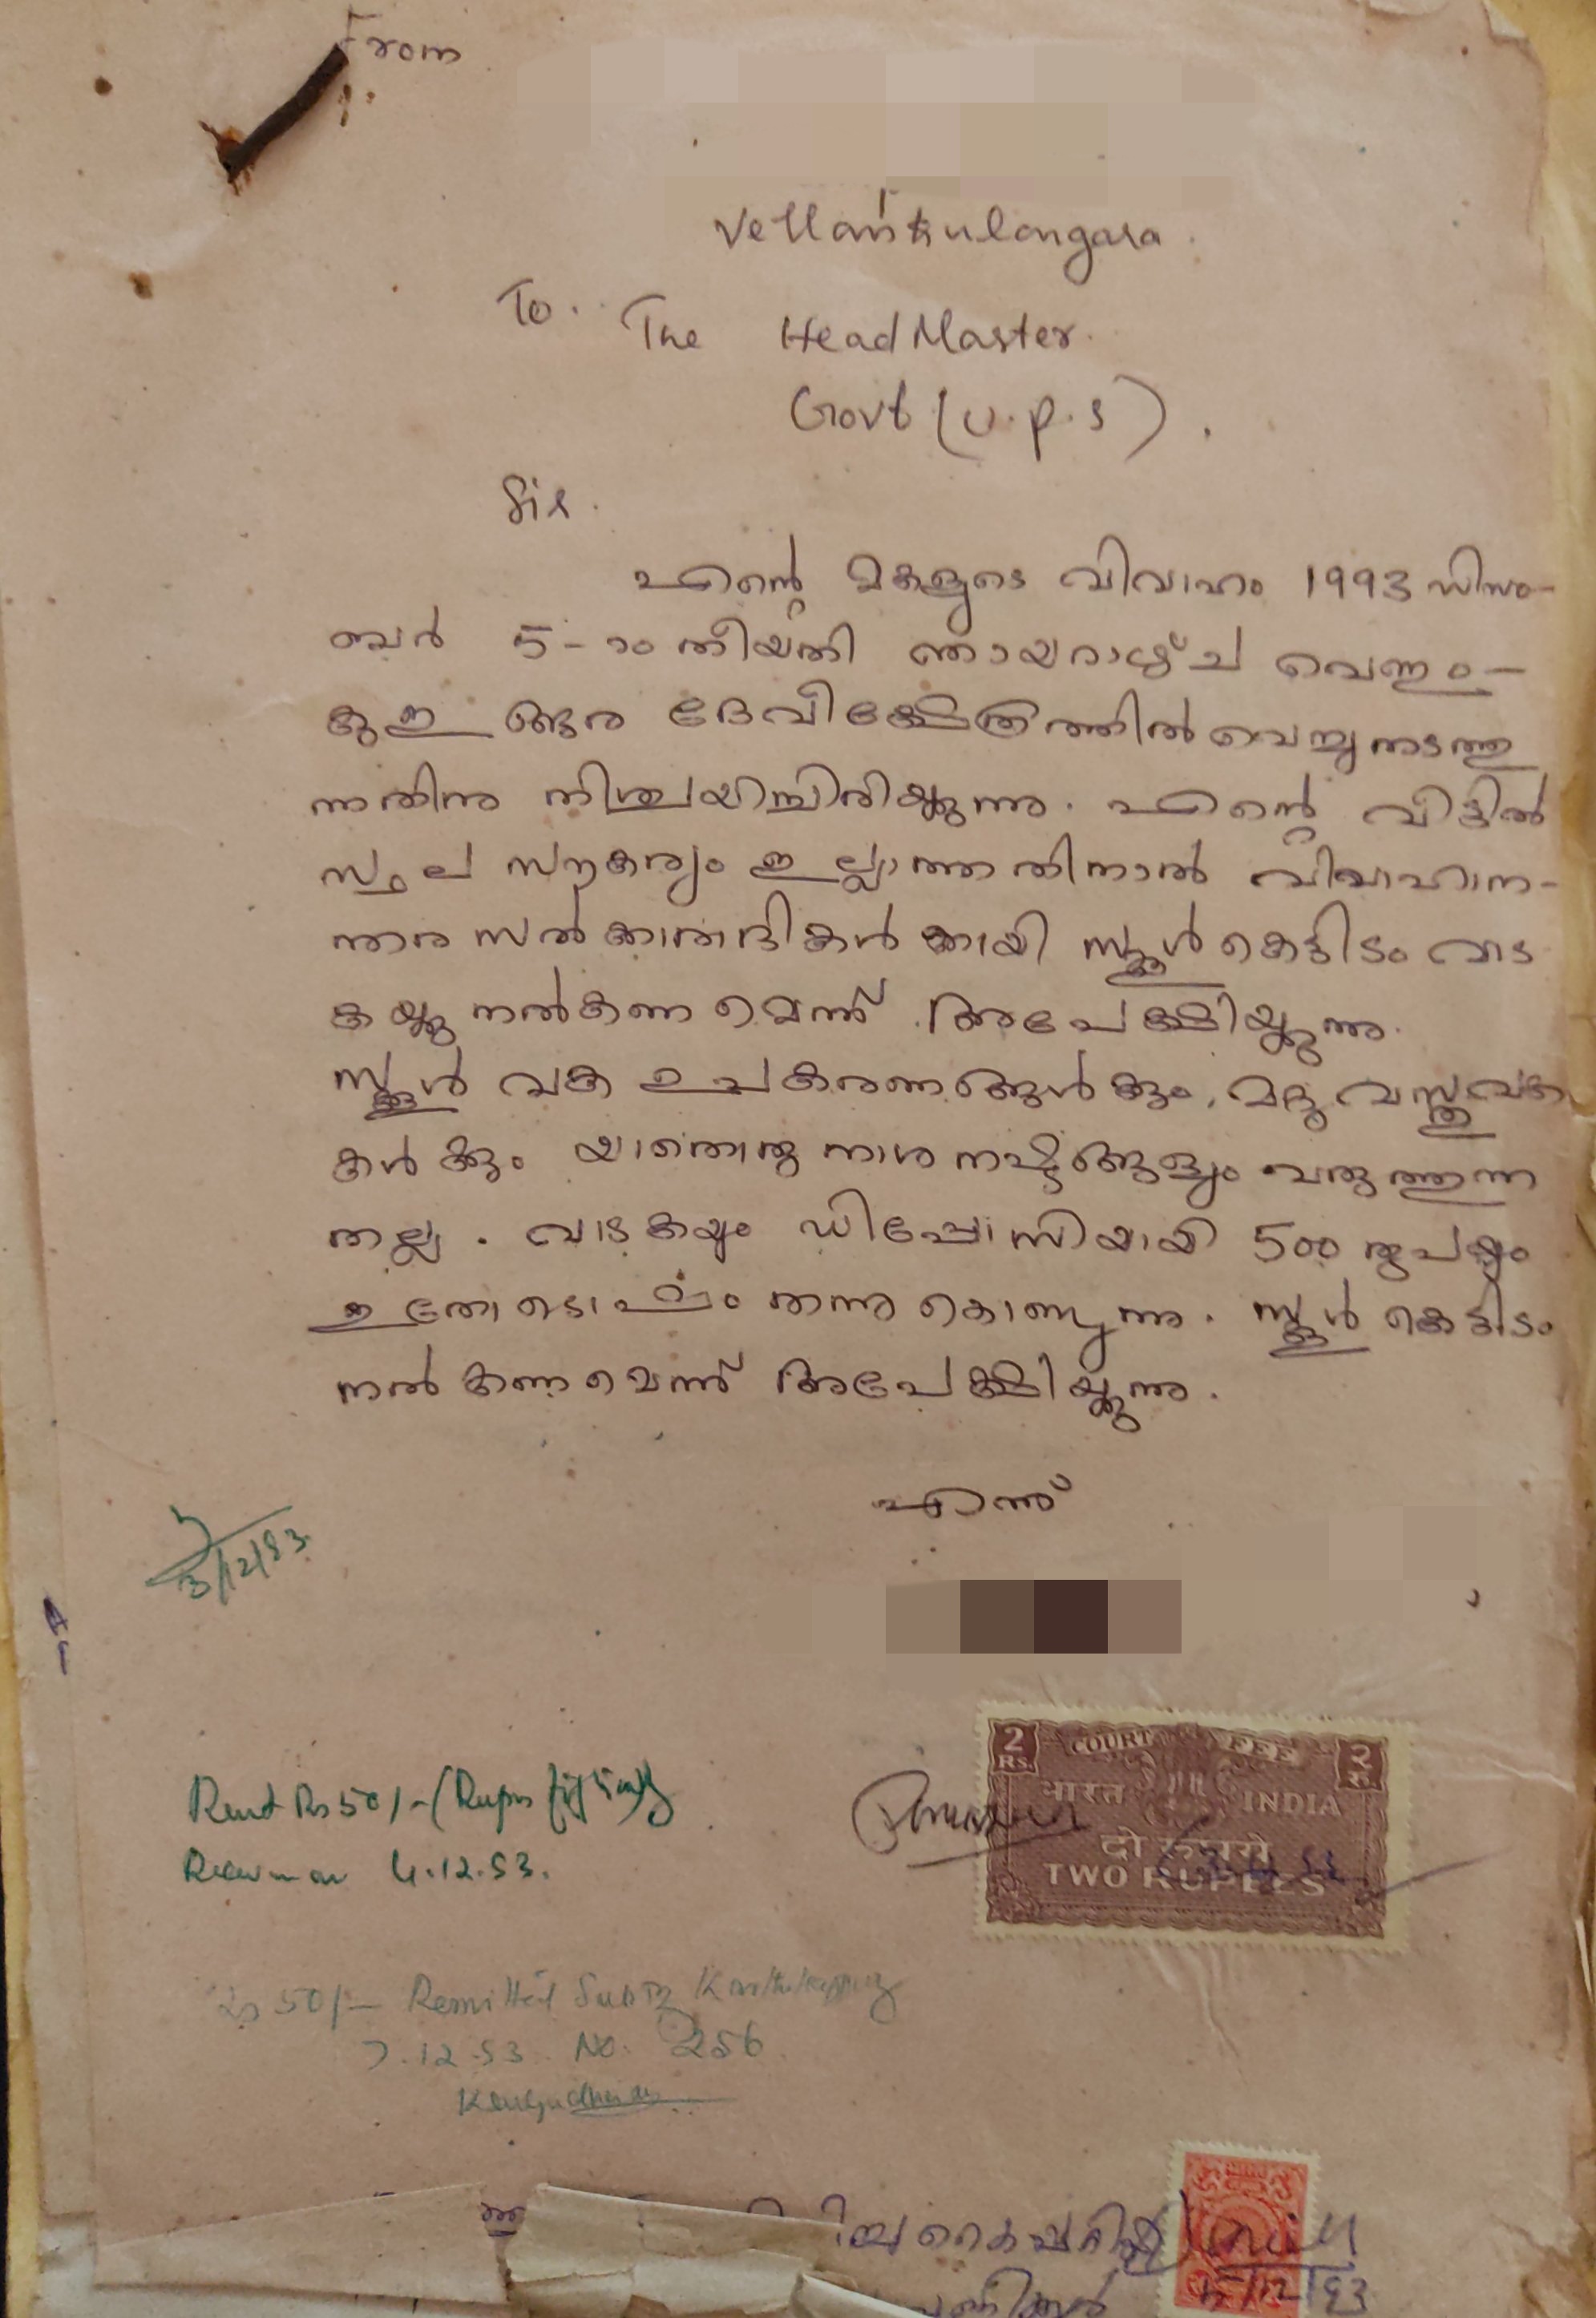 From
Vettankulangara.
To. The Head Master.
Govt (U.P.S).
Sir.
എന്റെ മകളുടെ വിവാഹം 1993 ഡിസം-
ബർ 5-ാം തീയതി ഞായറാഴ്ച വെണ്ടും-
കുളങ്ങര ദേവീക്ഷേത്രത്തിൽ വെച്ചു നടത്തു
ന്നതിനു നിശ്ചയിച്ചിരിയ്ക്കുന്നു. എന്റെ വീട്ടിൽ
സ്ഥല സൗകര്യം ഇല്ലാത്തതിനാൽ വിവാഹാന-
ന്തര സൽക്കാരാദികൾക്കായി സ്കൂൾ കെട്ടിടം വാട
കയ്ക്കു നൽകണമെന്ന് അപേക്ഷിയ്ക്കുന്നു.
സ്കൂൾ വക ഉപകരണങ്ങൾക്കും, മറ്റു വസ്തുവക
കൾക്കും യാതൊരു നാശനഷ്ടങ്ങളും വരുത്തുന്ന
തല്ല. വാടകയും ഡിപ്പോസിയായി 500 രൂപയും
ഇതോടൊപ്പം തന്നുകൊള്ളുന്നു. സ്കൂൾ കെട്ടിടം
നൽകണമെന്ന് അപേക്ഷിയ്ക്കുന്നു.
എന്ന്
3/12/93
2 RS. COURT FEE २ रु.
भारत INDIA
दो रुपये
TWO RUPEES
Rent Rs 50/- (Rupees fifty only)
4.12.93.
Rs 50/- Remitted Sub Try Karthikappally
7.12.93. No. 256
കൈപ്പറ്റി
15/12/93